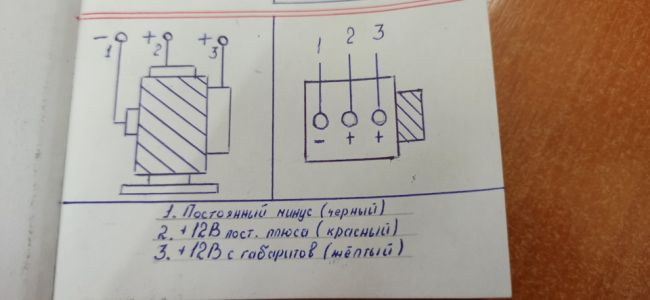 - 1 + 2 + 3
1 2 3
- + +
1. Постоянный минус (черный)
2. +12В пост. плюса (красный)
3. +12В с габаритов (жёлтый)